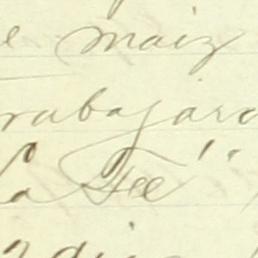 e maiz
rabajaro
La Fee"